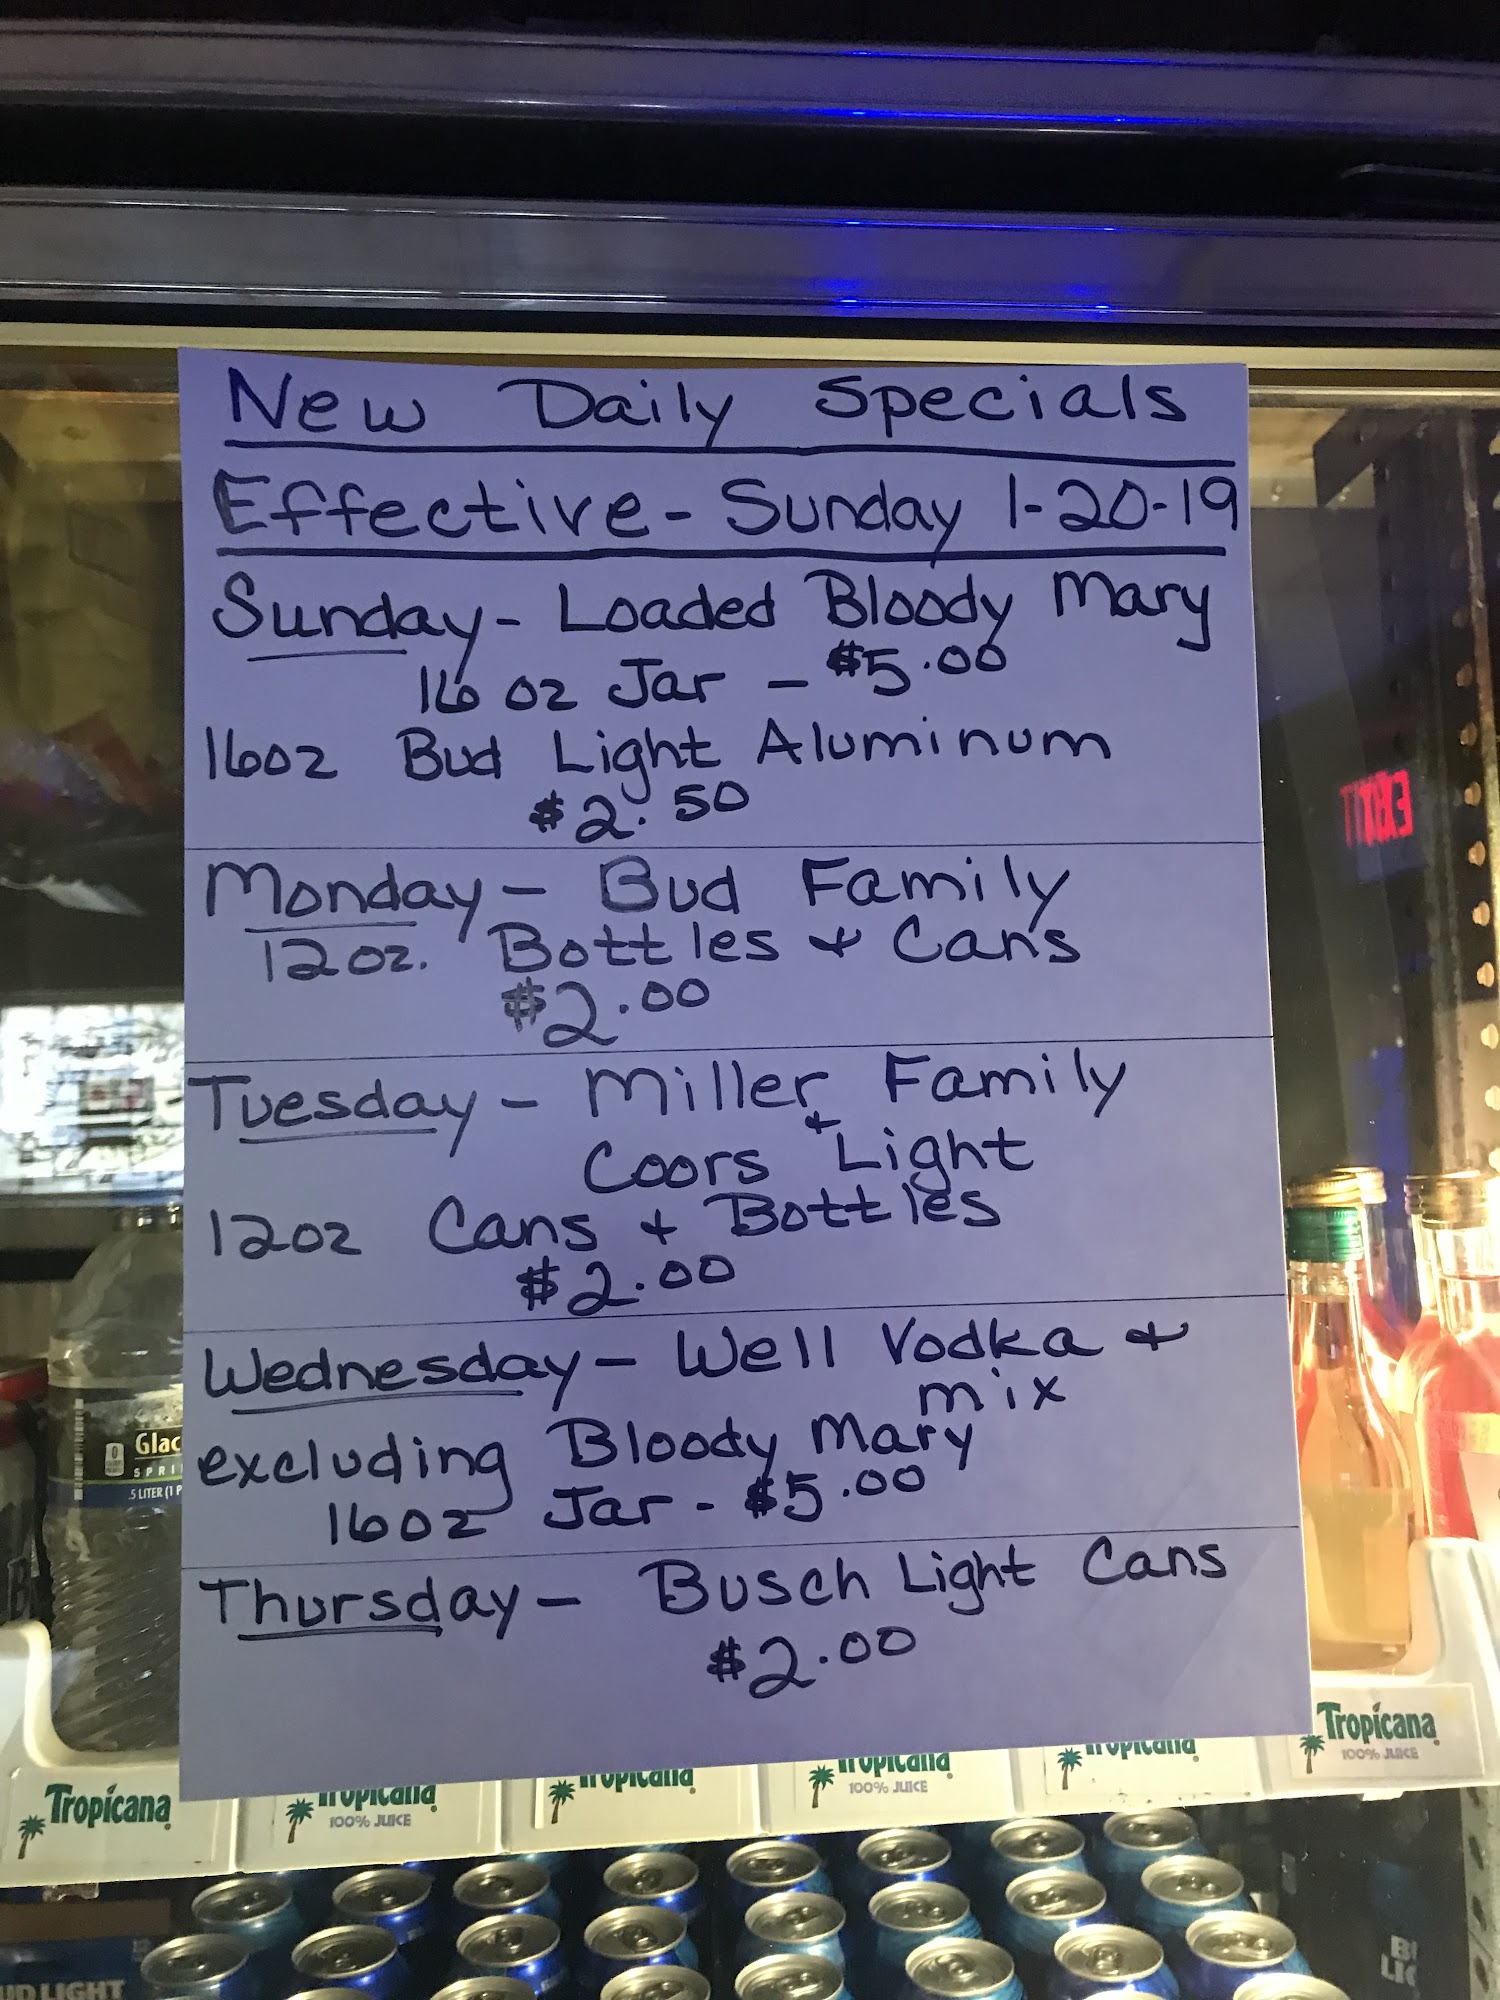 New Daily Specials
Effective - Sunday 1-20-19
Sunday - Loaded Bloody Mary
16 oz Jar - $5.00
16oz Bud Light Aluminum
$2.50
Monday - Bud Family
12oz. Bottles & Cans
$2.00
Tuesday - Miller Family
&
Coors Light
12oz Cans & Bottles
$2.00
Wednesday - Well Vodka &
mix
excluding Bloody Mary
16oz Jar - $5.00
Thursday - Busch Light Cans
$2.00
EXIT
Glac
SPRI
.5 LITER (1 P
Tropicana
Tropicana
100% JUICE
Tropicana
Tropicana
100% JUICE
Tropicana
Tropicana
100% JUICE
UD LIGHT